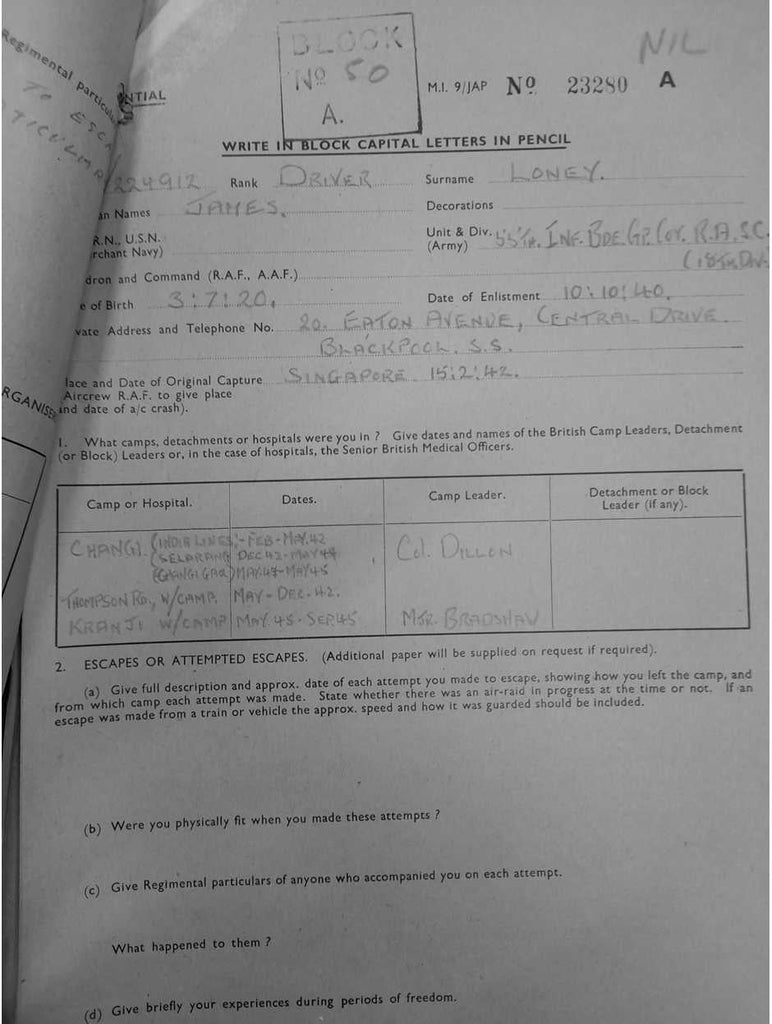 Regimental particul
TO ESC
NTIAL
BLOCK
Nº 50
A.
NIL
M.I. 9/JAP Nº 23280 A
WRITE IN BLOCK CAPITAL LETTERS IN PENCIL
/224912 Rank DRIVER Surname LONEY.
an Names JAMES. Decorations
R.N., U.S.N. Unit & Div. 55TH. INF. BDE. GP. COY. R.A.S.C.
rchant Navy) (Army) (18TH DIV.)
dron and Command (R.A.F., A.A.F.)
e of Birth 3:7:20. Date of Enlistment 10:10:40.
vate Address and Telephone No. 20. EATON AVENUE, CENTRAL DRIVE
BLACKPOOL. S.S.
lace and Date of Original Capture SINGAPORE 15:2:42.
Aircrew R.A.F. to give place
and date of a/c crash).
RGANISE
1. What camps, detachments or hospitals were you in ? Give dates and names of the British Camp Leaders, Detachment
(or Block) Leaders or, in the case of hospitals, the Senior British Medical Officers.
Camp or Hospital. Dates. Camp Leader. Detachment or Block
Leader (if any).
CHANGI. (INDIA LINES:- FEB-MAY.42 COL. DILLON
(SELARANG DEC 42-MAY 44
(CHANGI GAOL) MAY.44-MAY45
THOMPSON RD., W/CAMP. MAY-DEC.42.
KRANJI W/CAMP MAY.45-SEP.45 MJR. BRADSHAW
2. ESCAPES OR ATTEMPTED ESCAPES. (Additional paper will be supplied on request if required).
(a) Give full description and approx. date of each attempt you made to escape, showing how you left the camp, and
from which camp each attempt was made. State whether there was an air-raid in progress at the time or not. If an
escape was made from a train or vehicle the approx. speed and how it was guarded should be included.
(b) Were you physically fit when you made these attempts ?
(c) Give Regimental particulars of anyone who accompanied you on each attempt.
What happened to them ?
(d) Give briefly your experiences during periods of freedom.